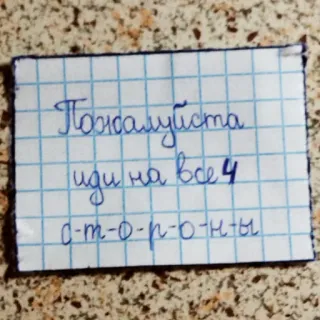 Пожалуйста
иди на все 4
с-т-о-р-о-н-ы